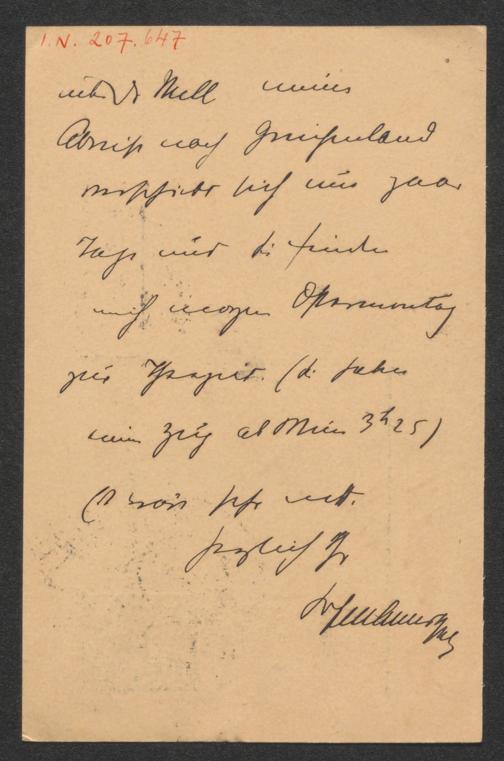 I.N. 207.647
lieber Dr Mell meine
Abreise nach Griechenland
verschiebt sich um paar
Tage und Sie finden
mich morgen Ostermontag
zur Jause. (Sie haben
einen Zug ab Wien 3h25)
Es wäre sehr nett.
herzlich Ihr
Hofmannsthal